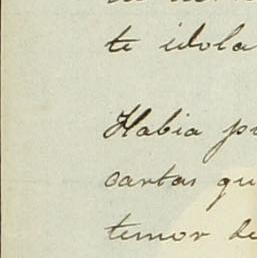 te idola
Habia pu
cartas qu
temor de